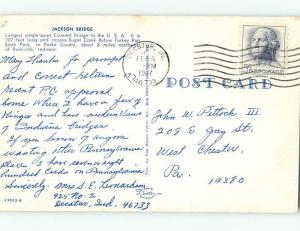 JACKSON BRIDGE
Longest single-span Covered Bridge in the U. S. A. It is
207 feet long and crosses Sugar Creek below Turkey Run
State Park, in Parke County, about 8 miles northeast
of
Many thanks for prompt
and correct return
Recent P.C. approval
some. When I have a few of
Kings and have modern Views
of Indiana bridges.
If you know of anyone
wanting other Pennsylvania
places I have several
hundred Cards on Pennsylvania
Sincerely. Mrs S.E. Leonardson
925 No. 2
Decatur, Ind. 46733
DECATUR, IND
FEB
PM
1967
46733
5c U.S. POSTAGE
POST CARD
John W. Pittock III
208 E. Gay St.
West Chester,
Pa.
19380